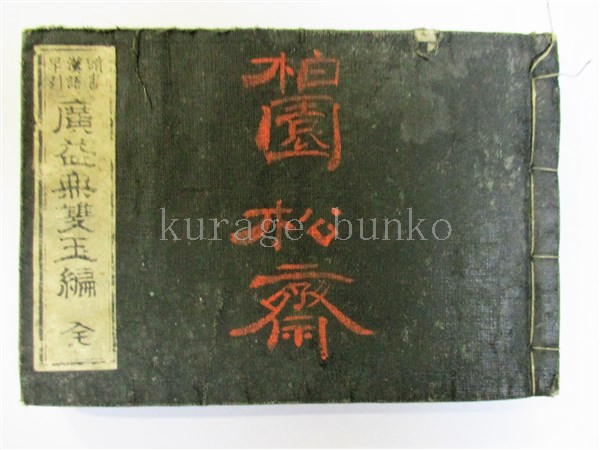 頭書
漢語
早引
廣益無雙玉編 全
柏園
松齋
kurage bunko